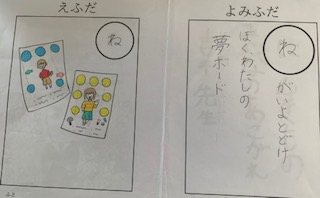 えふだ
ね
よみふだ
ねがいよとどけ
ぼくわたしの
夢ボード